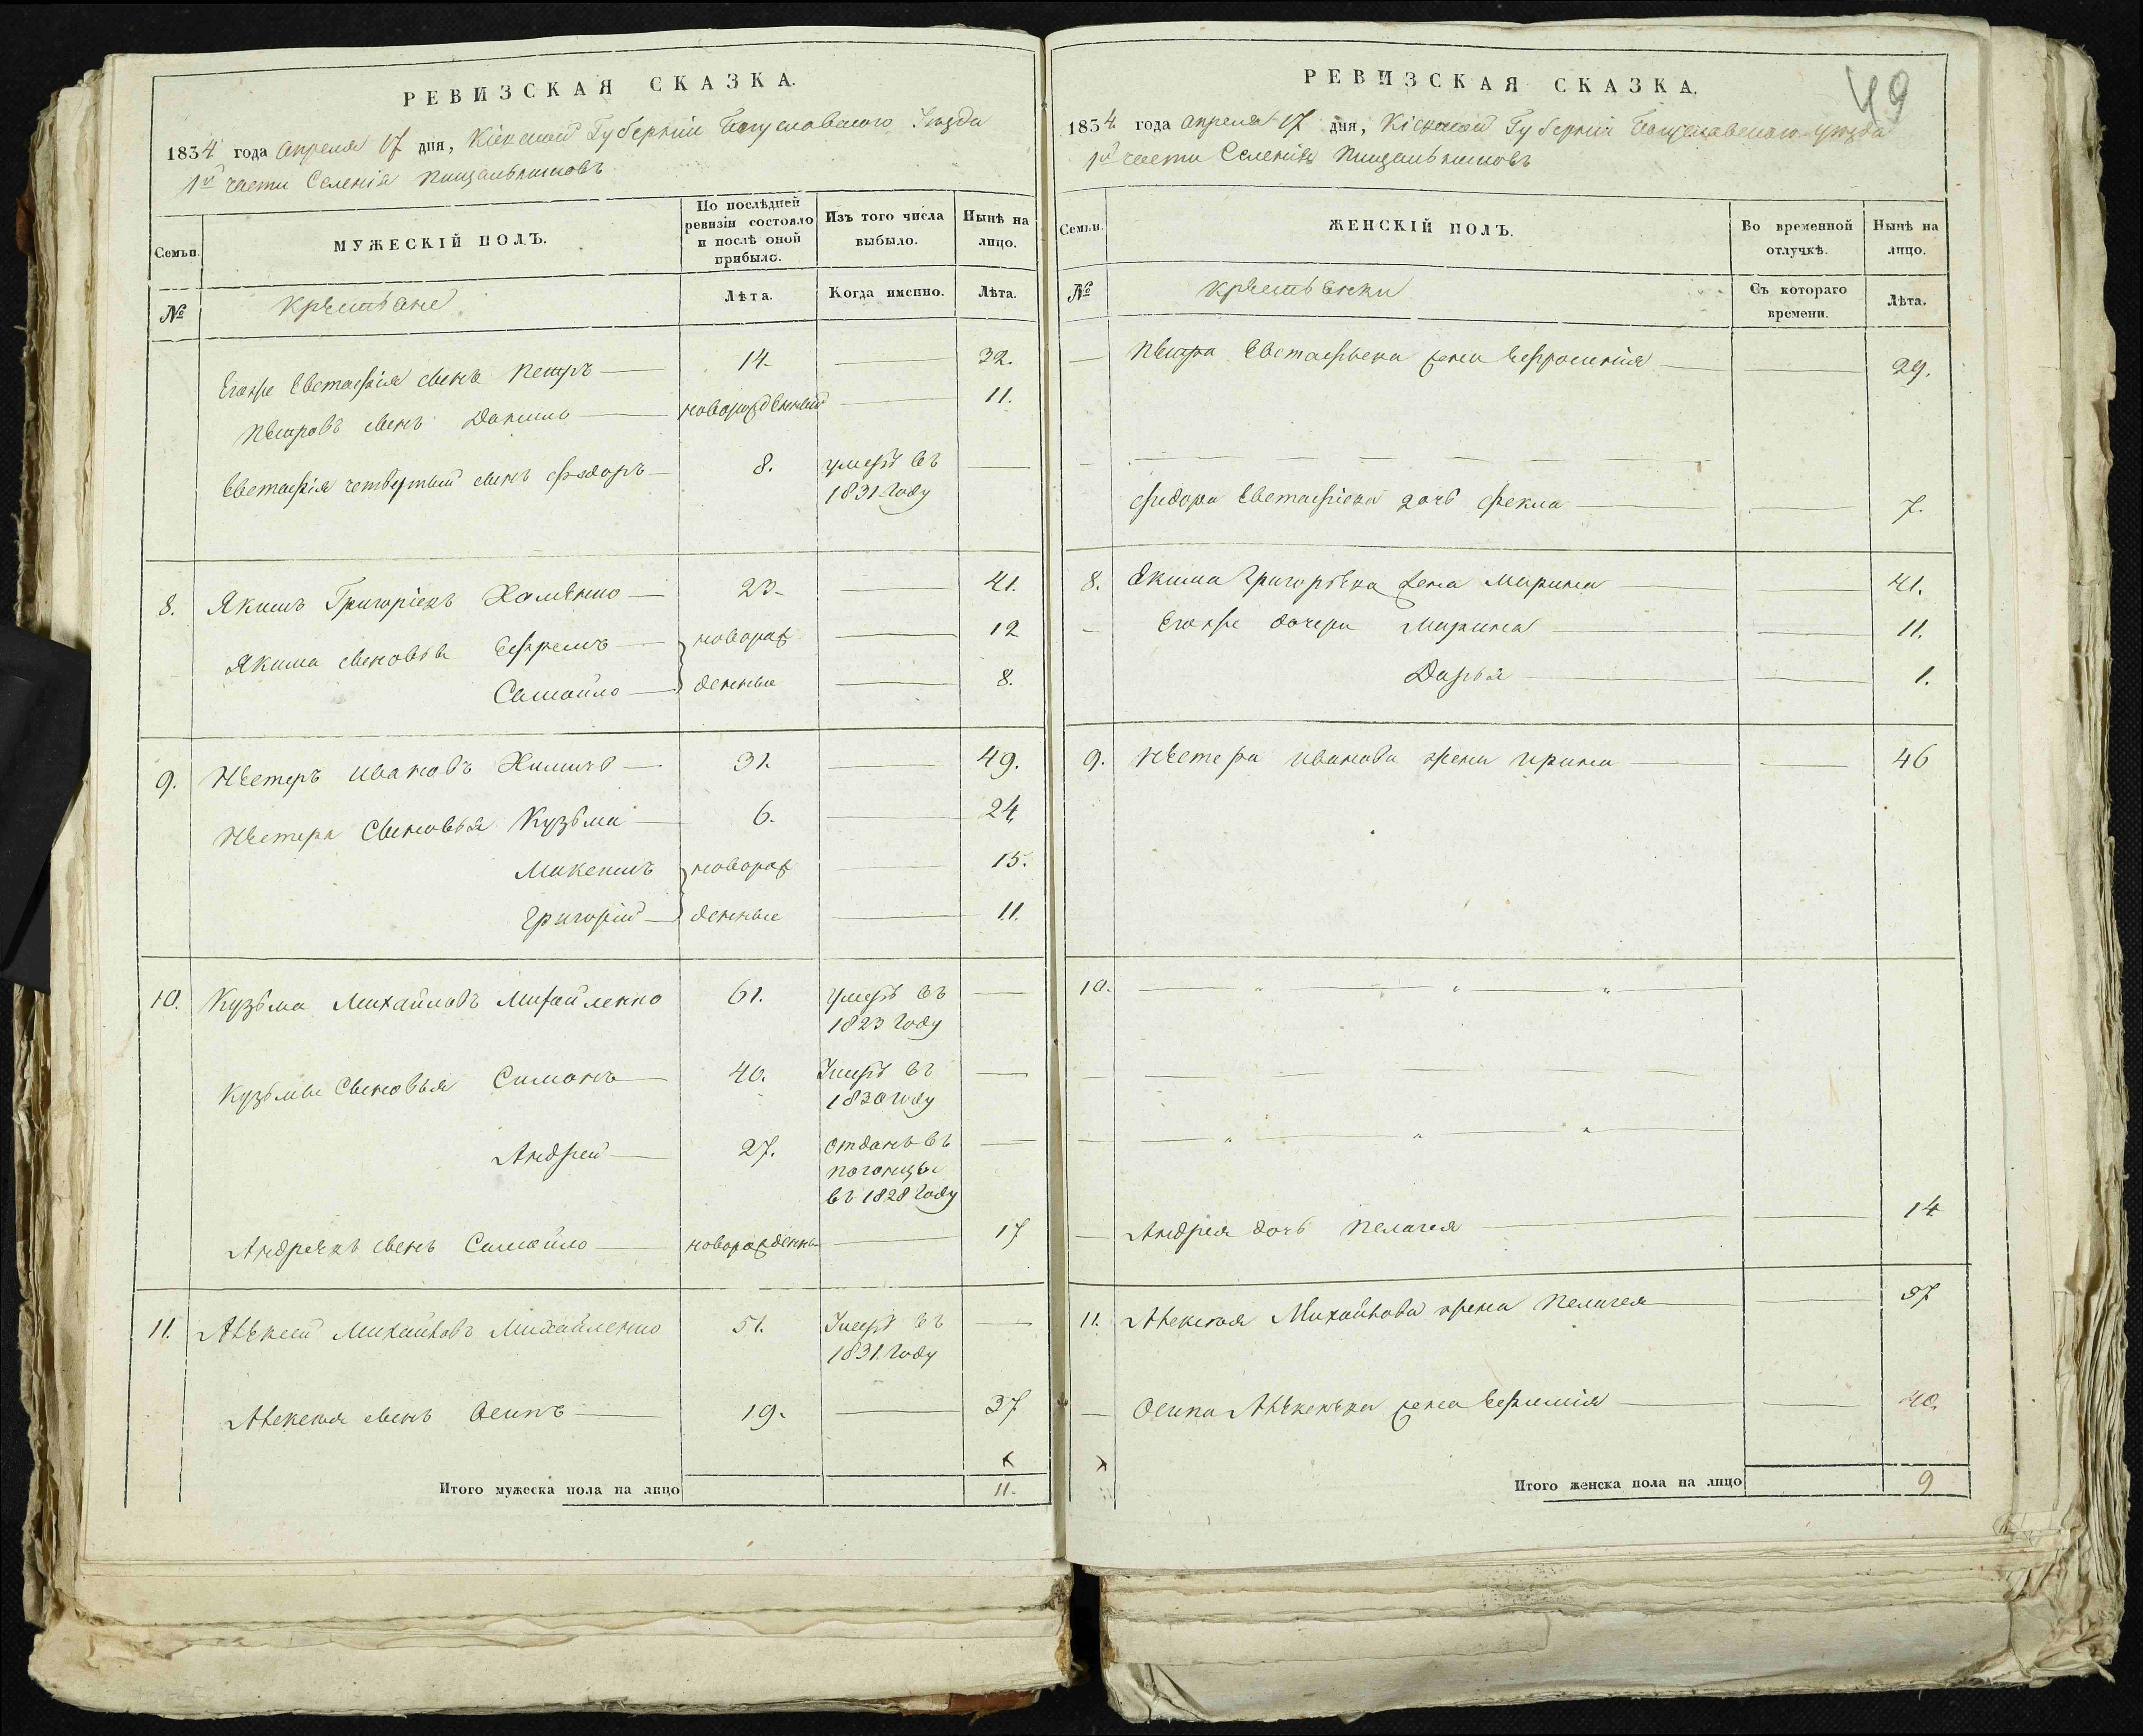 РЕВИЗСКАЯ СКАЗКА.
1834 года Апреля 17 дня, Кіевской Губерніи Богуславского Уѣзда
1й части Селенія Пищальниковъ
Семьи.
МУЖЕСКІЙ ПОЛЪ.
По послѣдней ревизіи состояло и послѣ оной прибыло.
Изъ того числа выбыло.
Нынѣ на лицо.
№
крѣстьяне
Лѣта.
Когда именно.
Лѣта.
Егожъ Евстафія сынъ Петръ 14. 32.
Пѣтровъ сынъ Данило новорожденный 11.
Евстафія четвертый сынъ Фѣдоръ 8. умеръ въ
1831 году
8. Якимъ Григоріевъ 23. 41.
Якима сыновья Ефремъ новорож 12
Самойло денные 8.
9. Нѣстеръ Ивановъ 31. 49.
Нѣстера Сыновья Кузьма 6. 24
новорож 15.
Григорій денные 11.
10. Кузьма Михайловъ Михайленко 61. умеръ въ
1823 году
Кузьмы Сыновья Симонъ 40. Умеръ въ
1830 году
Андрей 27. отданъ въ
погонцы
въ 1828 году
Андреевъ сынъ Самойло новорожденны 17
11. Алѣксей Михайловъ Михайленко 51. Умеръ въ
1831 году
Алексея сынъ Осипъ 19. 37
х
Итого мужеска пола на лицо 11.
49
РЕВИЗСКАЯ СКАЗКА.
1834 года Апреля 17 дня, Кіевской Губерніи Богуславского уѣзда
1й части Селенія Пищальниковъ
Семьи.
ЖЕНСКІЙ ПОЛЪ.
Во временной отлучкѣ.
Нынѣ на лицо.
№
крѣстьянки
Съ котораго времени.
Лѣта.
Пѣтра Евстафьева жена Ефросинія 29.
Фидора Евстафіева дочь Фекла 7.
8. Якима Григорьева жена Марина 41.
Егожъ дочери Марина 11.
Дарья 1.
9. Нѣстера Иванова жена Ирина 46
10.
Андрея дочь Пелагея 14
11. Алексея Михайлова жена Пелагея 57
Осипа Алѣксѣева жена Ефимія 40.
х
Итого женска пола на лицо 9